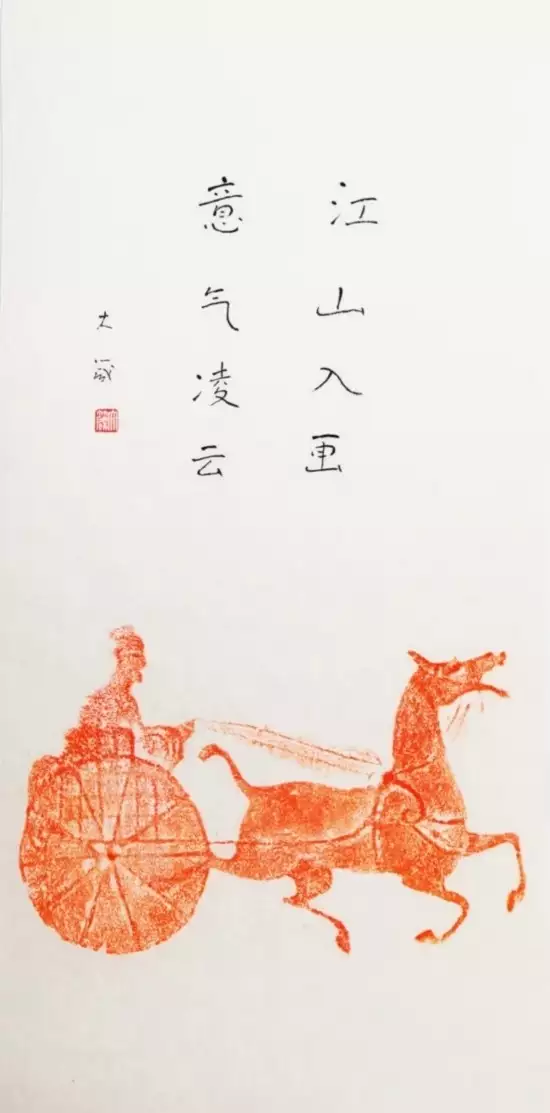 江山入画
意气凌云
大箴